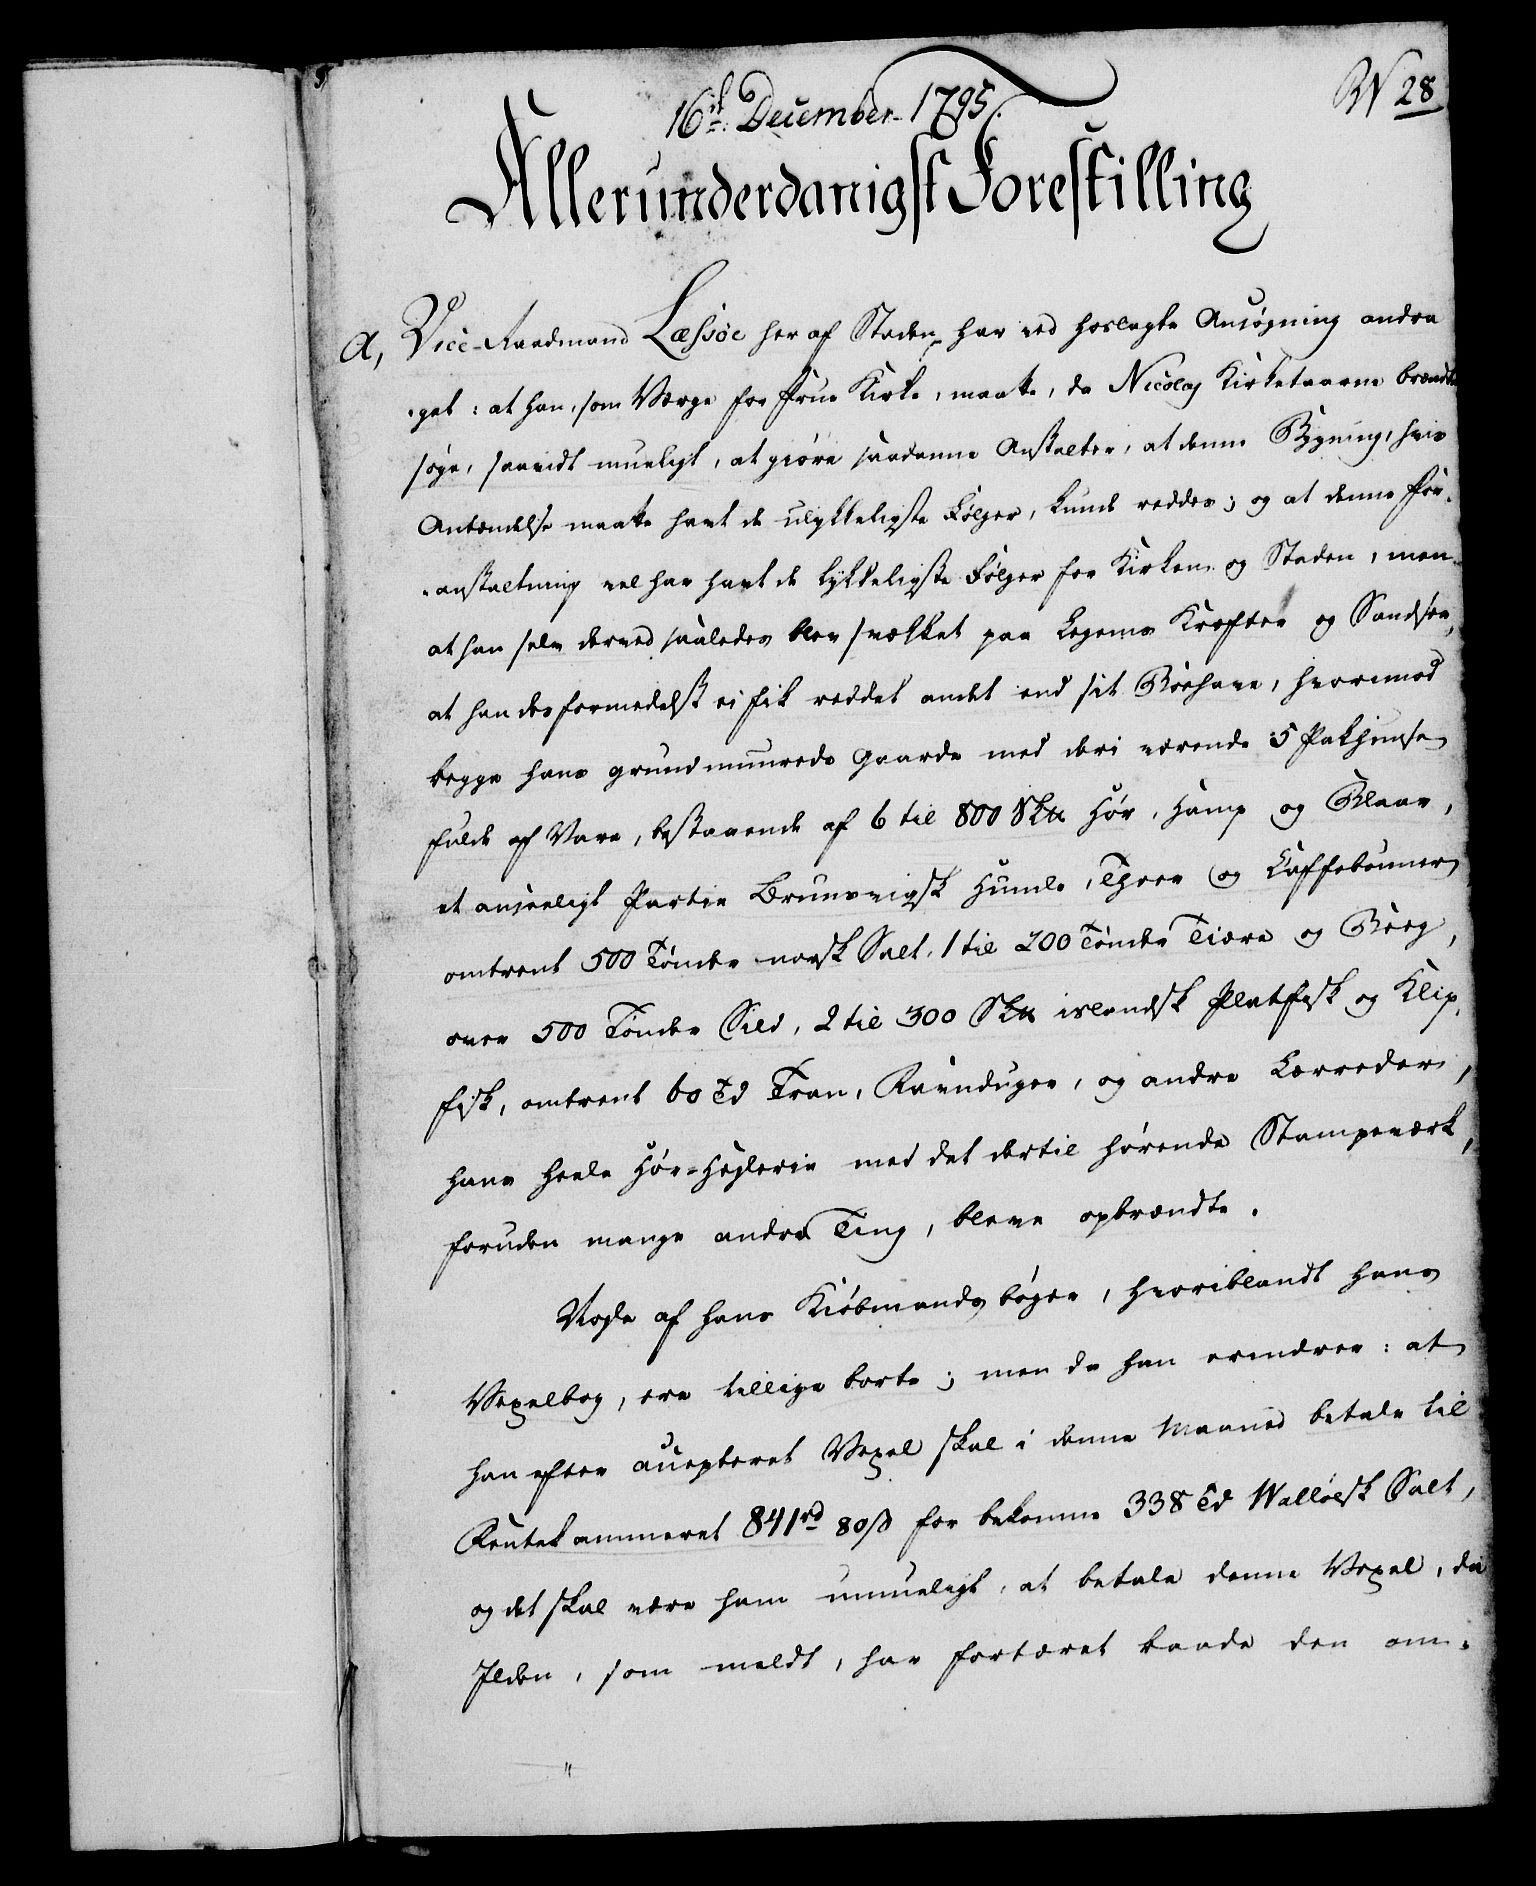 16de December 1795.
N 28
Allerunderdanigst Forestilling
a, Vice-Raadmand Læssøe her af Staden har ved hoslagte Ansøgning andra
get: at han, som Værge for Frue Kirke, maatte, da Nicolaj Kirketaarne brændte
søge, saavidt mueligt, at giøre saadanne Anstalter, at denne Bygning, hvis
Antændelse maatte havt de ulykkeligste Følger, kunde reddes; og at denne For-
anstaltning vel har havt de lykkeligste Følger for Kirken og Staden, men
at han selv derved saaledes blev svækket paa Legems Kræfter og Sandser,
at han desformedelst ei fik reddet andet end sit Boehave, hvorimod
begge hans grundmuurede Gaarde med deri værende 5 Pakhuuse
fulde af Vare, bestaaende af 6 til 800 Sk℔ Hør, Hamp og Blaar,
et anseeligt Partie Brunsvigsk Humle, Thee og Caffebønner
omtrent 500 Tønder norsk Salt, 1 til 200 Tønder Tiære og Beeg,
over 500 Tønder Sild, 2 til 300 Sk℔ islandsk Platfisk og Klip-
fisk, omtrent 60 Td Tran, Ravnduger, og andre Lærreder,
hans heele Hør-Heglerie med det dertil hørende Stampeværk,
foruden mange andre Ting, bleve opbrændte.
Nogle af hans Kiøbmandsbøger, hvoriblandt hans
Vexelbog, ere tillige borte; men da han erindrer: at
han efter accepteret Vexel skal i denne Maaned betale til
Rentekammeret 841rd 80ß for bekomne 338 Td Walløesk Salt,
og det skal være ham umueligt, at betale denne Vexel, da
Ilden, som meldt, har fortæret baade den om-